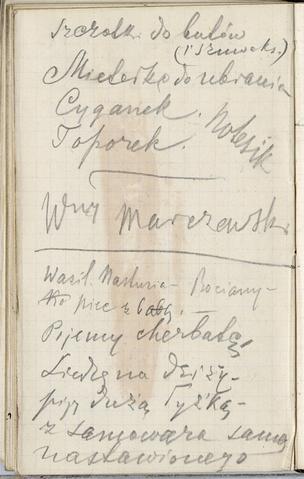 Szczotki do butów
(i szuwaks.)
Mietełkę do ubrania
Cyganek.
Toporek. Notesik
Wny Marczewski
Wasil. Nasturia – Bociany –
piec z babą. –
Pijemy cherbatę,
Siedzę na dzieży –
piję dużą łyżką –
z samowara samo
nastawionego